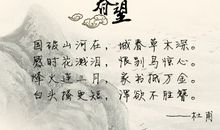 春望
国破山河在，城春草木深。
感时花溅泪，恨别鸟惊心。
烽火连三月，家书抵万金。
白头搔更短，浑欲不胜簪。
——杜甫